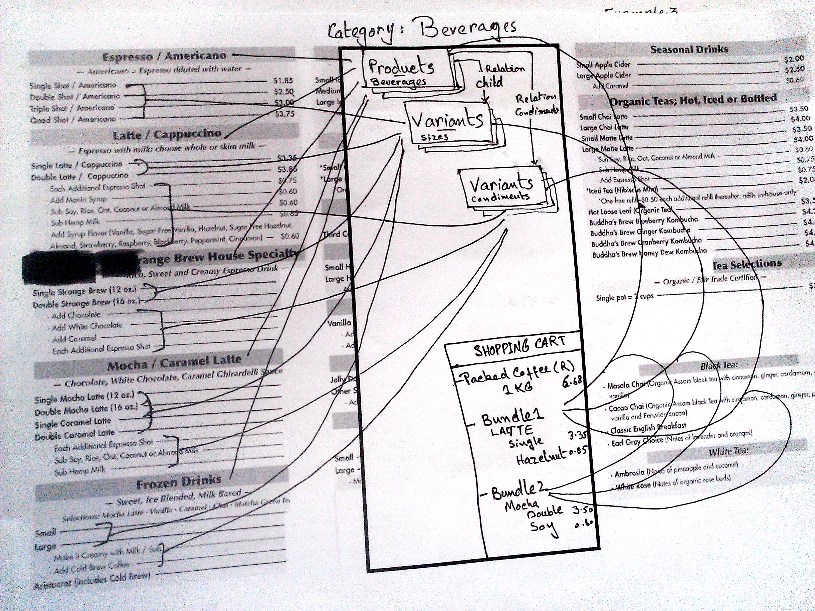 Category: Beverages
Espresso / Americano
— Americano - Espresso diluted with water —
Single Shot / Americano $1.85
Double Shot / Americano $2.50
Triple Shot / Americano $3.00
Quad Shot / Americano $3.75
Latte / Cappuccino
— Espresso with milk; choose whole or skim milk —
Single Latte / Cappuccino $3.35
Double Latte / Cappuccino $3.85
Each Additional Espresso Shot $0.75
Add Monin Syrup $0.60
Sub Soy, Rice, Oat, Coconut or Almond Milk $0.60
Sub Hemp Milk $0.85
Add Syrup Flavor (Vanilla, Sugar Free Vanilla, Hazelnut, Sugar Free Hazelnut,
Almond, Strawberry, Raspberry, Blackberry, Peppermint, Cinnamon) $0.60
Brew House Specialty
Sweet and Creamy Espresso Drink
Single Strange Brew (12 oz.)
Double Strange Brew (16 oz.)
- Add Chocolate
- Add White Chocolate
- Add Caramel
Each Additional Espresso Shot
Mocha / Caramel Latte
— Chocolate, White Chocolate, Caramel Ghirardelli Sauce
Single Mocha Latte (12 oz.)
Double Mocha Latte (16 oz.)
Single Caramel Latte
Double Caramel Latte
Each Additional Espresso Shot
Sub Soy, Rice, Oat, Coconut or Almond Milk
Sub Hemp Milk
Frozen Drinks
— Sweet, Ice Blended, Milk Based —
Small
Large
Make it Creamy with Milk / Sub
- Add Cold Brew Coffee
(includes Cold Brew)
Products
Beverages
Relation
child
Variants
Sizes
Relation
Condiments
Variants
Condiments
SHOPPING CART
- Packed Coffee (R)
1 KG 6.68
- Bundle1
LATTE
Single 3.35
Hazelnut 0.85
- Bundle2
Mocha
Double 3.50
Soy 0.60
Seasonal Drinks
Small Apple Cider $2.00
Large Apple Cider $2.50
Add Caramel $0.60
Organic Teas; Hot, Iced or Bottled
Small Chai Latte $3.50
Large Chai Latte $4.00
Small Matte Latte $3.50
Large Matte Latte $4.00
Sub Soy, Rice, Oat, Coconut or Almond Milk $0.60
Sub Hemp Milk
Add Espresso Shot
Iced Tea (Hibiscus Mint)
Hot Loose Leaf Organic Tea
Buddha's Brew Blueberry Kombucha
Buddha's Brew Ginger Kombucha
Buddha's Brew Cranberry Kombucha
Buddha's Brew Honey Dew Kombucha
Tea Selections
— Organic / Fair Trade Certified —
Single pot = 2 cups
Black Tea:
- Masala Chai (Organic Assam black tea with cinnamon, ginger, cardamom,
vanilla)
- Cacao Chai (Organic Assam black Tea with cinnamon, cardamom, ginger,
vanilla and Peruvian cacao)
- Classic English Breakfast
- Earl Grey Choice (Notes of lavender and orange)
White Tea:
- Ambrosia (Notes of pineapple and coconut)
- White Rose (Notes of organic rose buds)